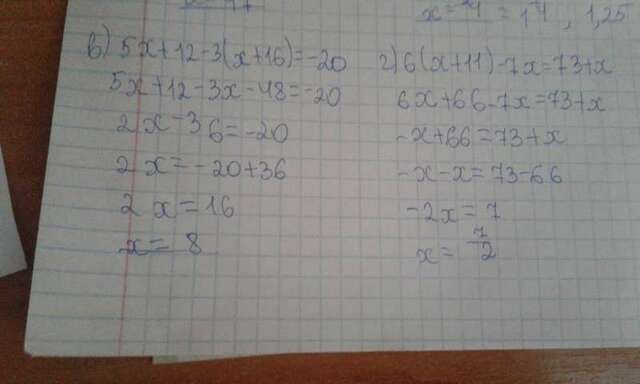 в) 5x+12-3(x+16)=-20
5x+12-3x-48=-20
2x-36=-20
2x=-20+36
2x=16
x=8
1,25
г) 6(x+11)-7x=73+x
6x+66-7x=73+x
-x+66=73+x
-x-x=73-66
-2x=7
x= 7/2